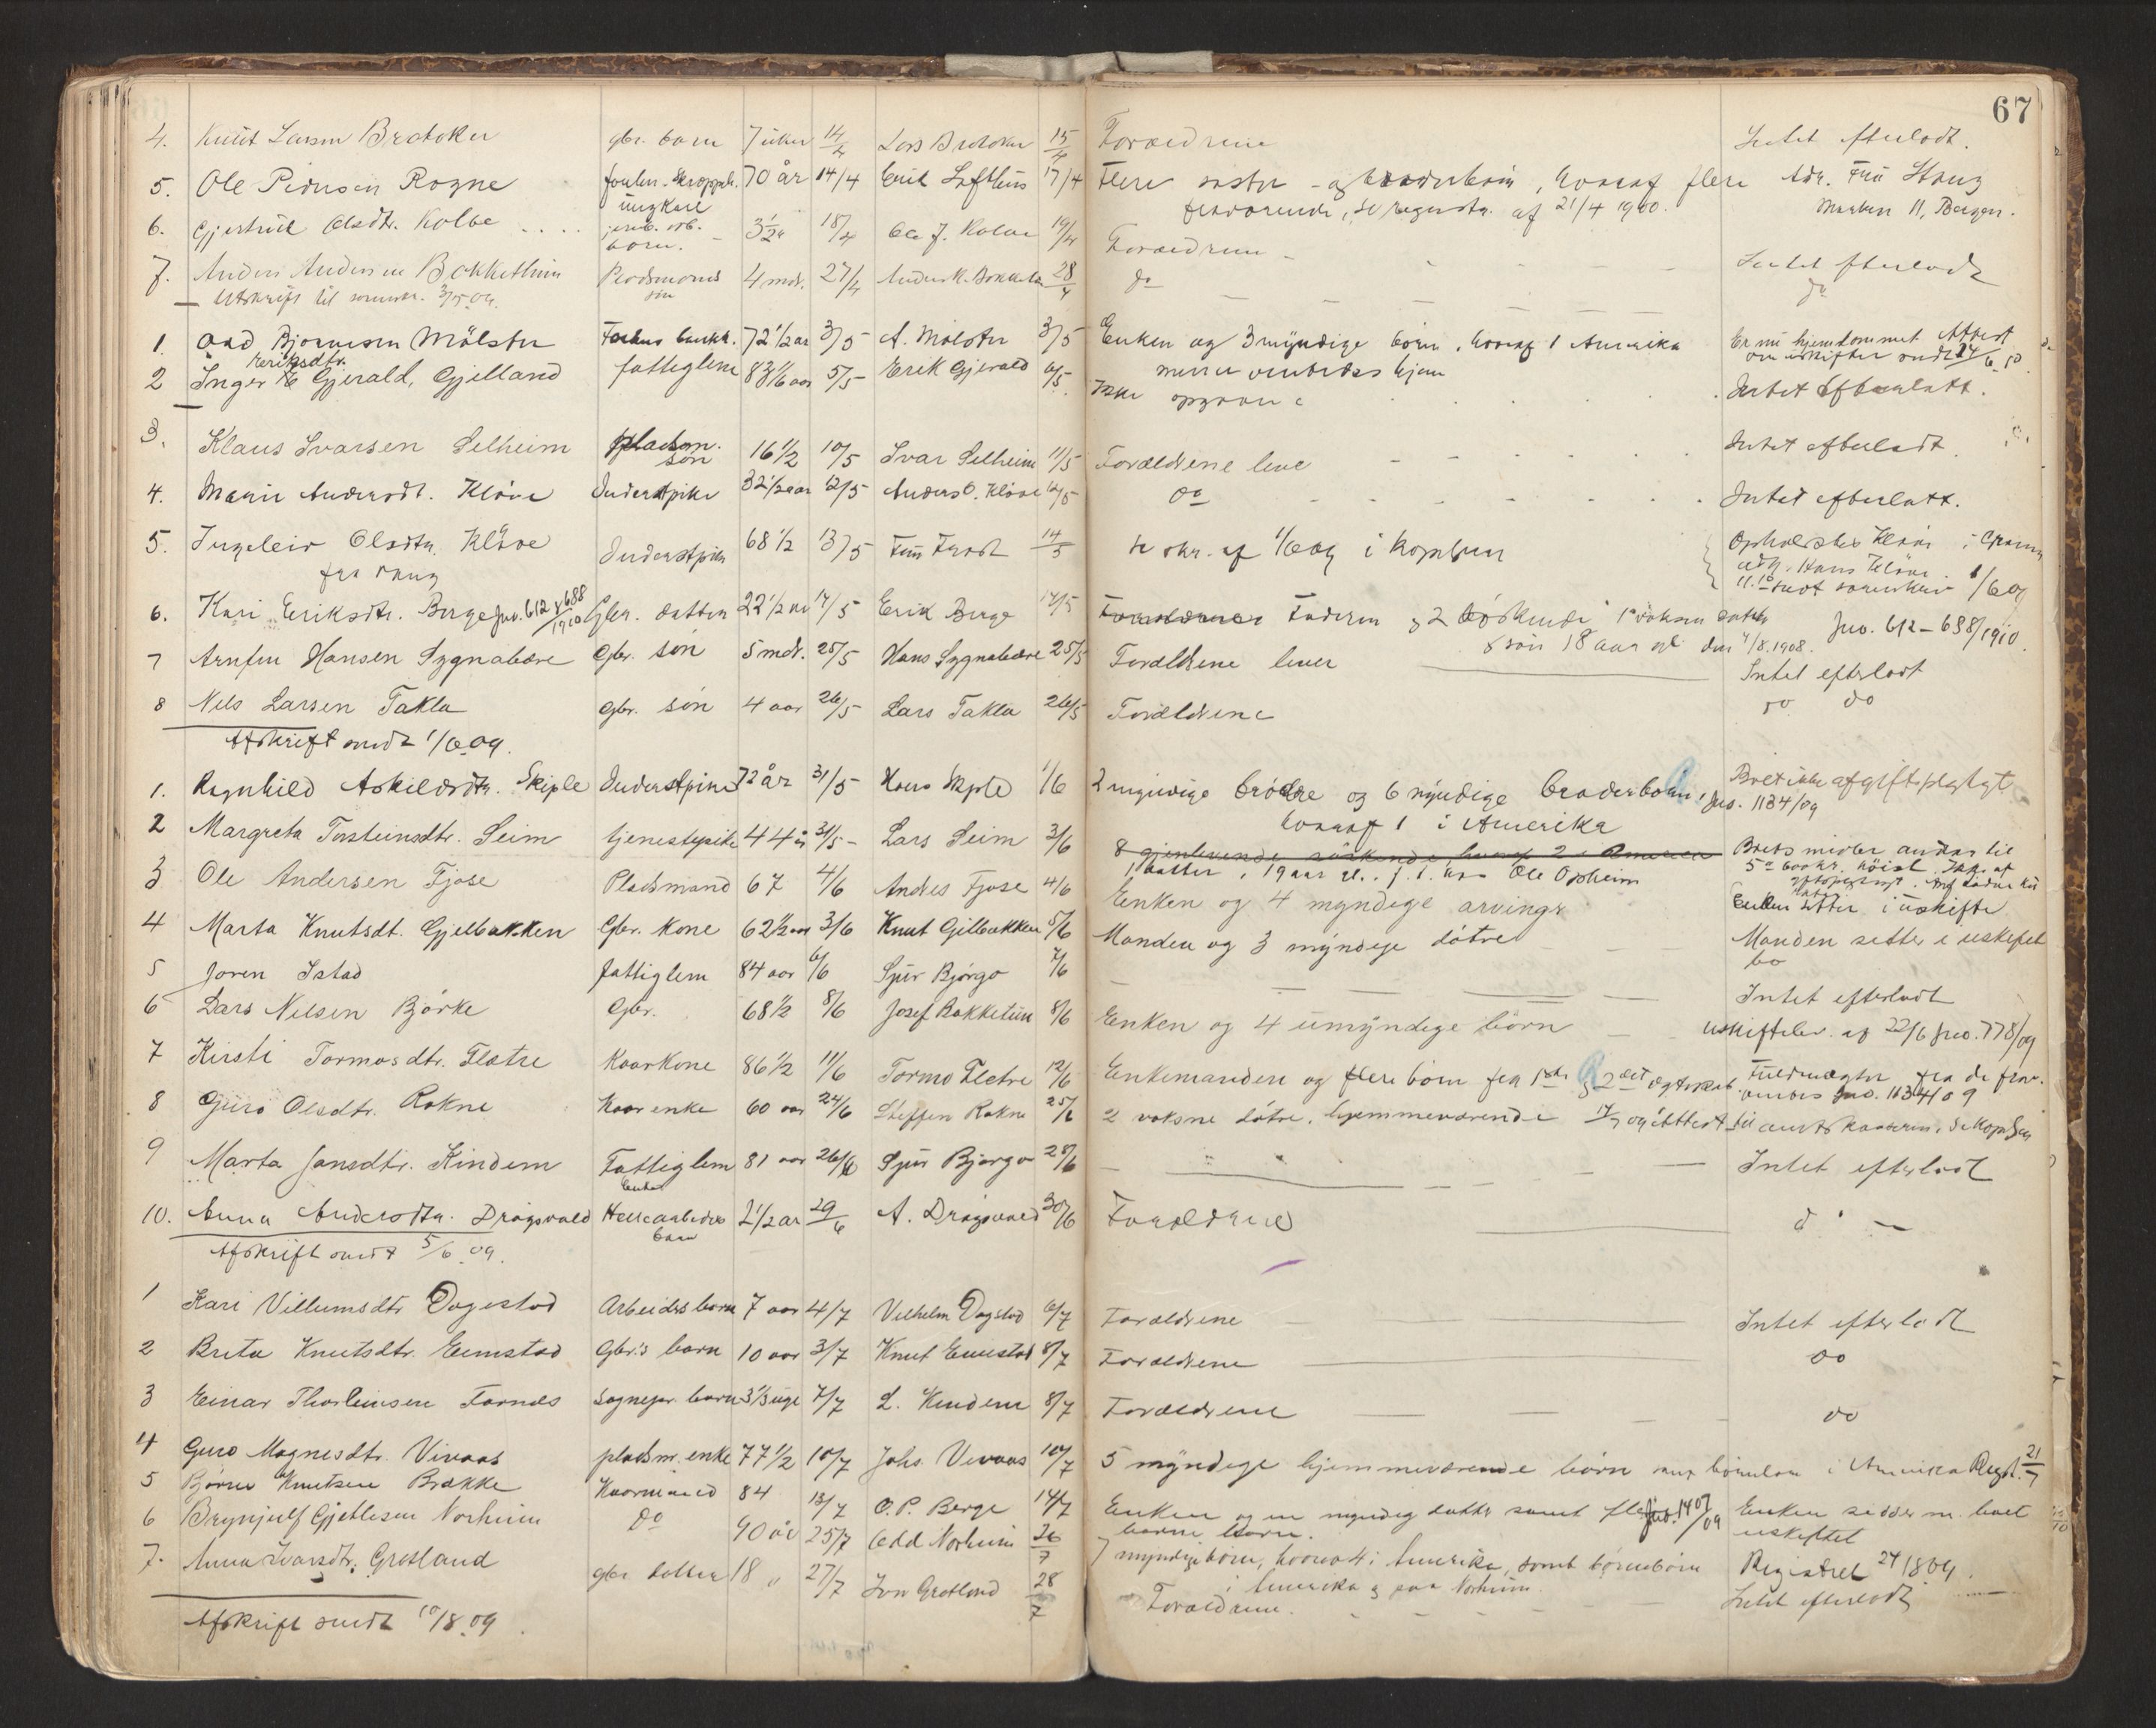 67
4. Knut Larsen Brataker gbr. barn 7 uker 14/4 Lars Brataker 15/4 Foræeldrene Intet efterladt.
5. Ole Pedersen Rogne ungkarl 70 år 14/4 Erik Lofthus 17/4 Flere søster- og broderbørn, hvoraf flere Adr. Frú Stang
fraværende, se registr. af 21/4 1900. Marken 11, Bergen.
6. Gjertrud Olsdtr. Kolbe .... barn. 3 1/2 18/4 Ole J. Kolbe 19/4 Forældrene Intet efterladt
7. Anders Andersen Bakkethun Pladsmands søn 4 mdr. 27/4 Anders K. Bakketun 28/4 do do
Utskrift til sorenskr. 3/5.09.
1. Odd Bjørnesen Mølster 72 1/2 aar 3/5 A. Mølster 3/5 Enken og 3 myndige børn, hvoraf 1 Amerika Er nu hjemkommet Attest
Eriksdtr. men ventedes hjem om uskifte sendt 14/6 10
2 Inger E Gjerald, Gjelland fattiglem 83 1/6 aar 5/5 Erik Gjerald 6/5 Ikke opgivne Intet efterlatt.
3. Klaus Ivarsen Selheim pladsm. søn 16 1/2 10/5 Ivar Selheim 11/5 Forældrene leve Intet efterladt
4. Marie Andersdt. Kløve Inderstpike 32 1/2 aar 12/5 Anders O. Kløve 12/5 do Intet efterlatt.
5. Ingeleiv Olsdtr. Kløve Inderstpike 68 1/2 13/5 14/5 se skr. af 1/6 09 i kopibun Opholdstes Kløve
fra Vang Hans Kløve 1/6 09
6. Kari Eriksdtr. Berge Jno. 612 & 688/1910 Gbr. datter 22 1/2 aar 17/5 Erik Berge 17/5 Forældrene Faderen og 2 søskende 1 voksen datter Jno. 612-688/1910.
& søn 18 aar gl den 4/8.1908.
7 Arnfin Hansen Sygnabære Gbr. søn 5 mdr. 25/5 Hans Sygnabære 25/5 Forældrene lever Intet efterladt
8 Nils Larsen Takla Gbr. søn 4 aar 26/5 Lars Takla 26/5 Forældrene do do
Afskrift sendt 1/6.09.
1. Ragnhild Askildsdtr. Skiple Inderstpike 72 år 31/5 Hans Skiple 1/6 2 myndige brødre og 6 myndige broderbørn, Boet ikke afgiftspligtigt
hvoraf 1 i Amerika Jno. 1134/09
2 Margreta Torsteinsdtr. Seim tjenestepike 44 å 31/5 Lars Seim 3/6 8 gjenlevende søskende, hvoraf 2 i Amerika Boets midler andrar til
1 datter, 19 aar gl. Ole Opheim 5 a 600 kr. høist.
3 Ole Andersen Fjose Pladsmand 67 4/6 Andres Fjose 4/6 Enken og 4 myndige arvinger Enken sitter i uskifte
4 Marta Knutsdt. Gjelbakken Gbr. kone 62 1/2 aar 3/6 Knut Gilbakken 5/6 Manden og 3 myndige døtre Manden setter i uskiftet bo
5 Joren Istad fattiglem 84 aar 6/6 Sjur Bjørgo 7/6 Intet efterladt
6 Lars Nilsen Bjørke Gbr. 68 1/2 8/6 Josef Bakketun 8/6 Enken og 4 umyndige børn uskiftebev. af 22/6 Jno. 778/09
7 Kirsti Tormosdtr. Flatre Kaarkone 86 1/2 11/6 Tormo Fletre 12/6 Enkemanden og flere børn fra 1ste og 2det ægteskab. Fuldmagter fra de frav. Jno. 1134/09
8 Guro Olsdtr. Rokne Kaarenke 60 aar 24/6 Steffen Rokne 25/6 2 voksne døtre, hjemmeværende
9 Marta Jansdtr. Kindem Fattiglem Enke 81 aar 26/6 Sjur Bjørgo 28/6 Intet efterladt
10. Anna Andersdtr. Dragsvold barn 2 1/2 ar 29/6 A. Dragsvold 30/6 Forældrene do
Afskrift sendt 5/6.09.
1 Kari Villumsdtr Dagestad Arbeidsbarn 7 aar 4/7 Vilhelm Dagstad 6/7 Forældrene Intet efterladt
2 Brita Knutsdtr. Eimstad Gbr.s barn 10 aar 3/7 Knut Eimestad 8/7 Forældrene do
3 Einar Thorleivsen Farnes Sogneprr. barn 3 1/3 uge 7/7 L. Kindem 8/7 Forældrene do
4 Guro Magnesdtr. Vivaas pladsm. enke 77 1/2 10/7 Johs. Vivaas 10/7 5 myndige hjemmeværende børn samt børnebarn i Amerika Regst. 21/7
5 Bjørne Knutsen Brække Kaarmand 84 13/7 O. P. Berge 14/7 Enken og en myndig datter samt flere Jno. 1407/09 Enken sidder m. boet
børnebørn. uskiftet
6 Brynjulf Gjetlesen Norheim do 90 år 25/7 Odd Norheim 26/7 7 myndige børn, hvorav 4 i Amerika, samt børnebørn Registret 24/8 09.
i Amerika og paa Norheim
7. Anna Ivarsdtr. Grotland gbr. datter 18 " 27/7 Ivar Grotland 28/7 Forældrene. Intet efterladt
Afskrift sendt 10/8.09.